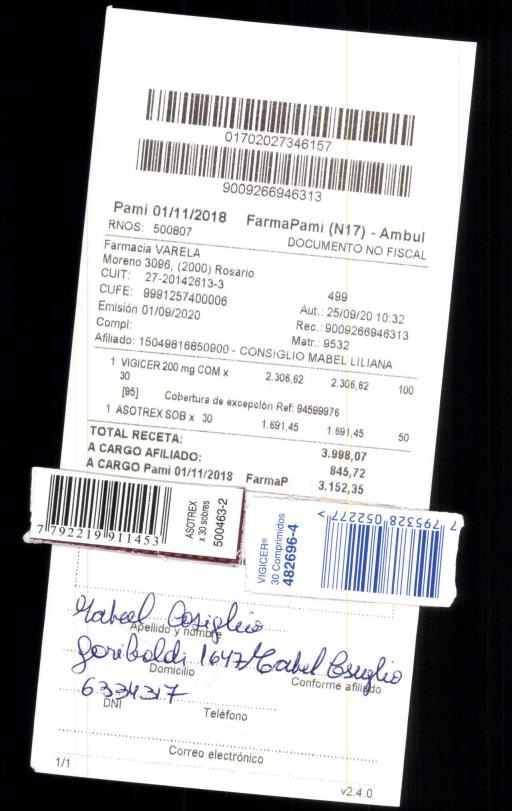 01702027346157
9009266946313
Pami 01/11/2018 FarmaPami (N17) - Ambul
RNOS: 500807 DOCUMENTO NO FISCAL
Farmacia VARELA
Moreno 3096, (2000) Rosario
CUIT: 27-20142613-3 499
CUFE: 9991257400006 Aut.: 25/09/20 10:32
Emisión 01/09/2020 Rec.: 9009266946313
Compl: Matr.: 9532
Afiliado: 15049816850900 - CONSIGLIO MABEL LILIANA
1 VIGICER 200 mg COM x 2.306,62 2.306,62 100
30
[95] Cobertura de excepción Ref: 94599976
1 ASOTREX SOB x 30 1.691,45 1.691,45 50
TOTAL RECETA: 3.998,07
A CARGO AFILIADO: 845,72
A CARGO Pami 01/11/2018 FarmaP 3.152,35
7 792219 911453
ASOTREX
x 30 sobres
500463-2
VIGICER®
30 Comprimidos
482696-4
7 795328 052277 >
Apellido y nombre
Goriboldi 1647
Domicilio Conforme afiliado
6334317
DNI Teléfono
Correo electrónico
1/1 v2.4.0